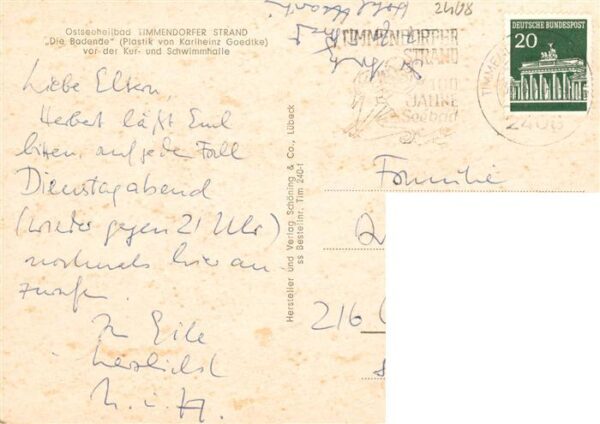 Ostseeheilbad TIMMENDORFER STRAND
„Die Badende" (Plastik von Karlheinz Goedtke)
vor der Kur- und Schwimmhalle
Liebe Eltern,
Herbert läßt Euch
bitten, auf jeden Fall
Dienstagabend
(wieder gegen 21 Uhr)
nochmals hier an
zurufen.
In Eile
herzlichst
H. u. H.
Hersteller und Verlag Schöning & Co., Lübeck
ss Bestellnr. Tim 240-1
2408
TIMMENDORFER
STRAND
JAHRE
Seebad
TIMMEN
2408
DEUTSCHE BUNDESPOST
20
Familie
216